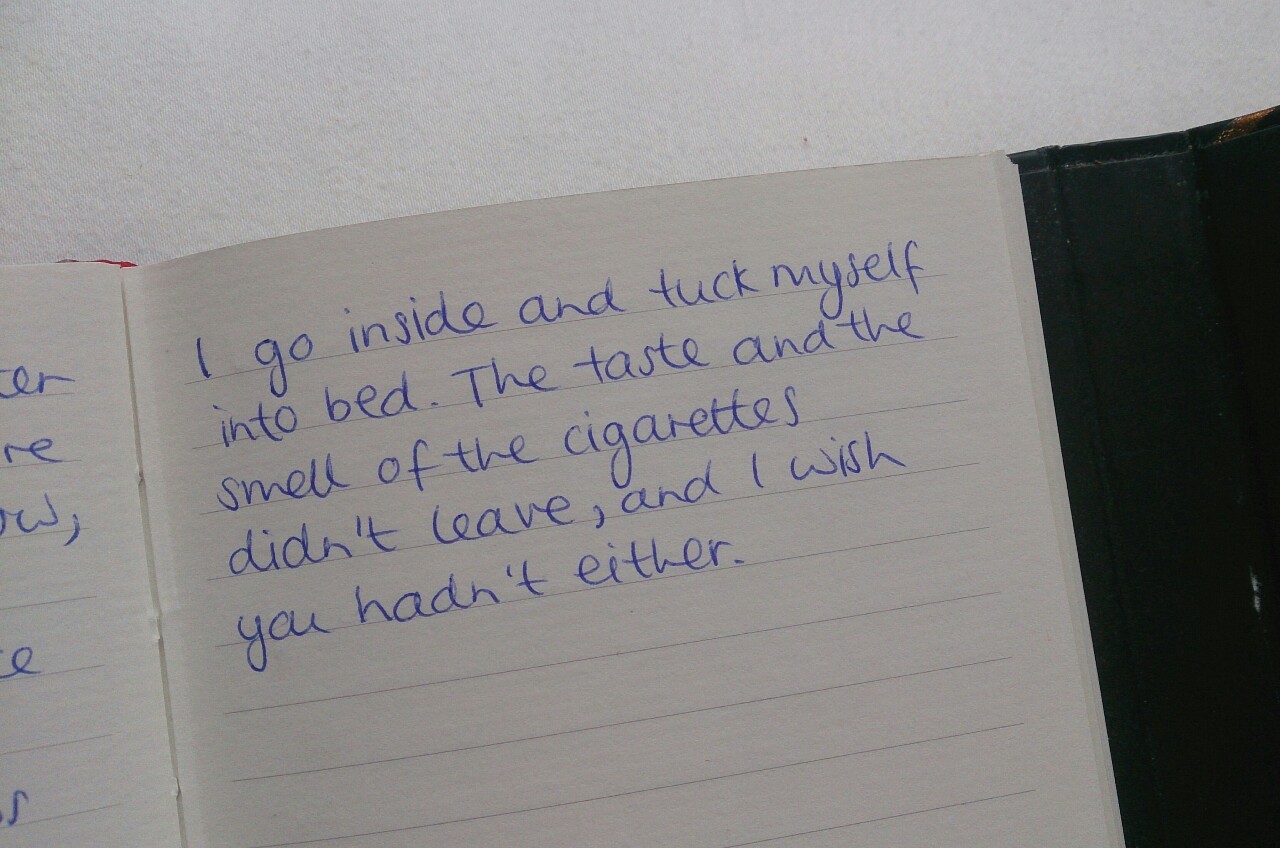 I go inside and tuck myself
into bed. The taste and the
smell of the cigarettes
didn't leave, and I wish
you hadn't either.